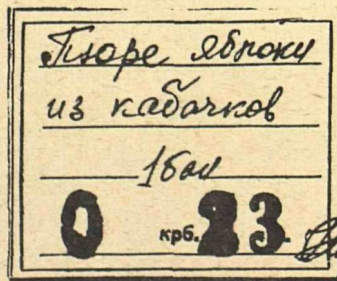 Пюре яблоки
из кабачков
1бан
0 крб. 23.